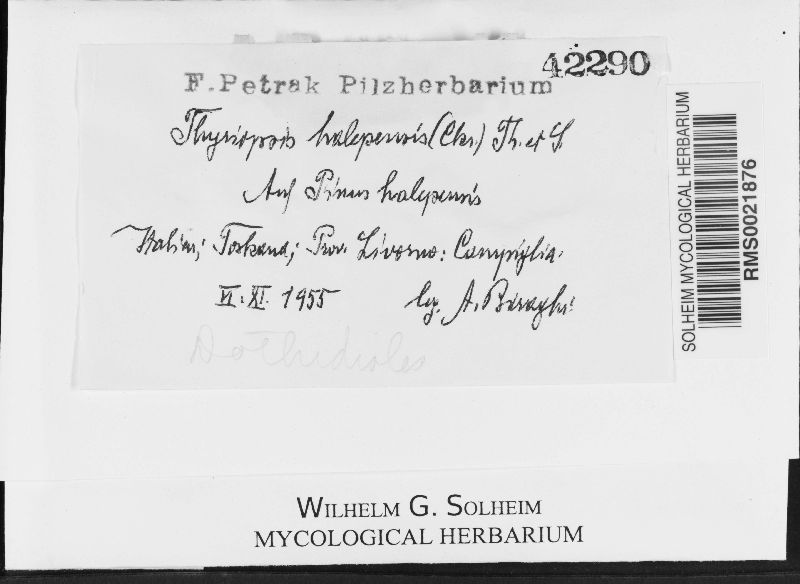 42290
F. Petrak Pilzherbarium
Thyriopsis halepensis (Cke.) Th. et S
Auf Pinus halepensis
Italien; Toskana; Prov. Livorno: Campiglia.
VI. XI. 1955 lg. A. Biraghi
Dothidiales
SOLHEIM MYCOLOGICAL HERBARIUM
RMS0021876
WILHELM G. SOLHEIM
MYCOLOGICAL HERBARIUM